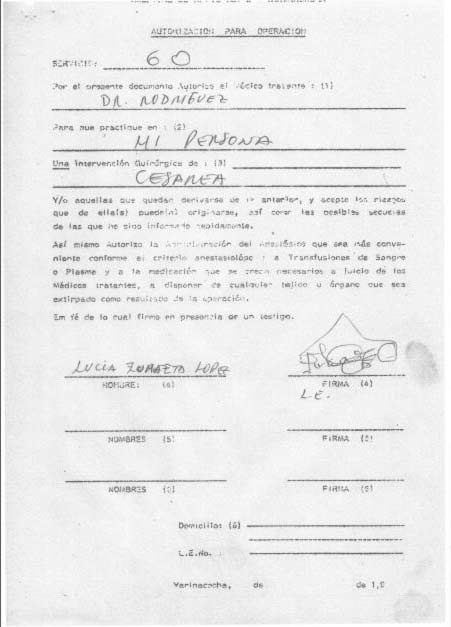 AUTORIZACION PARA OPERACION
SERVICIO: GO
Por el presente documento Autorizo al Médico tratante : (1)
DR. RODRIGUEZ
Para que practique en : (2)
MI PERSONA
Una Intervención Quirúrgica de : (3)
CESAREA
Y/o aquellas que quedan derivarse de la anterior, y acepto los riesgos
que de ella(s) puede(n) originarse, así como las posibles secuelas
de las que he sido informado debidamente.
Así mismo Autorizo la Administración del Anestésico que sea más conve-
niente conforme el criterio anestesiológ a Transfusiones de Sangre
o Plasma y a la medicación que se crea necesarios a juicio de los
Médicos tratantes, a disponer de cualquier tejido u órgano que sea
extirpado como resultado de la operación.
Em fé de lo cual firmo en presencia de un testigo.
LUCIA LOPEZ
NOMBRE: (4) FIRMA (4)
L.E.
NOMBRES (5) FIRMA (5)
NOMBRES FIRMA (5)
Domicilio: (6)
L.E.No. :
Yarinacocha, de de 1,9